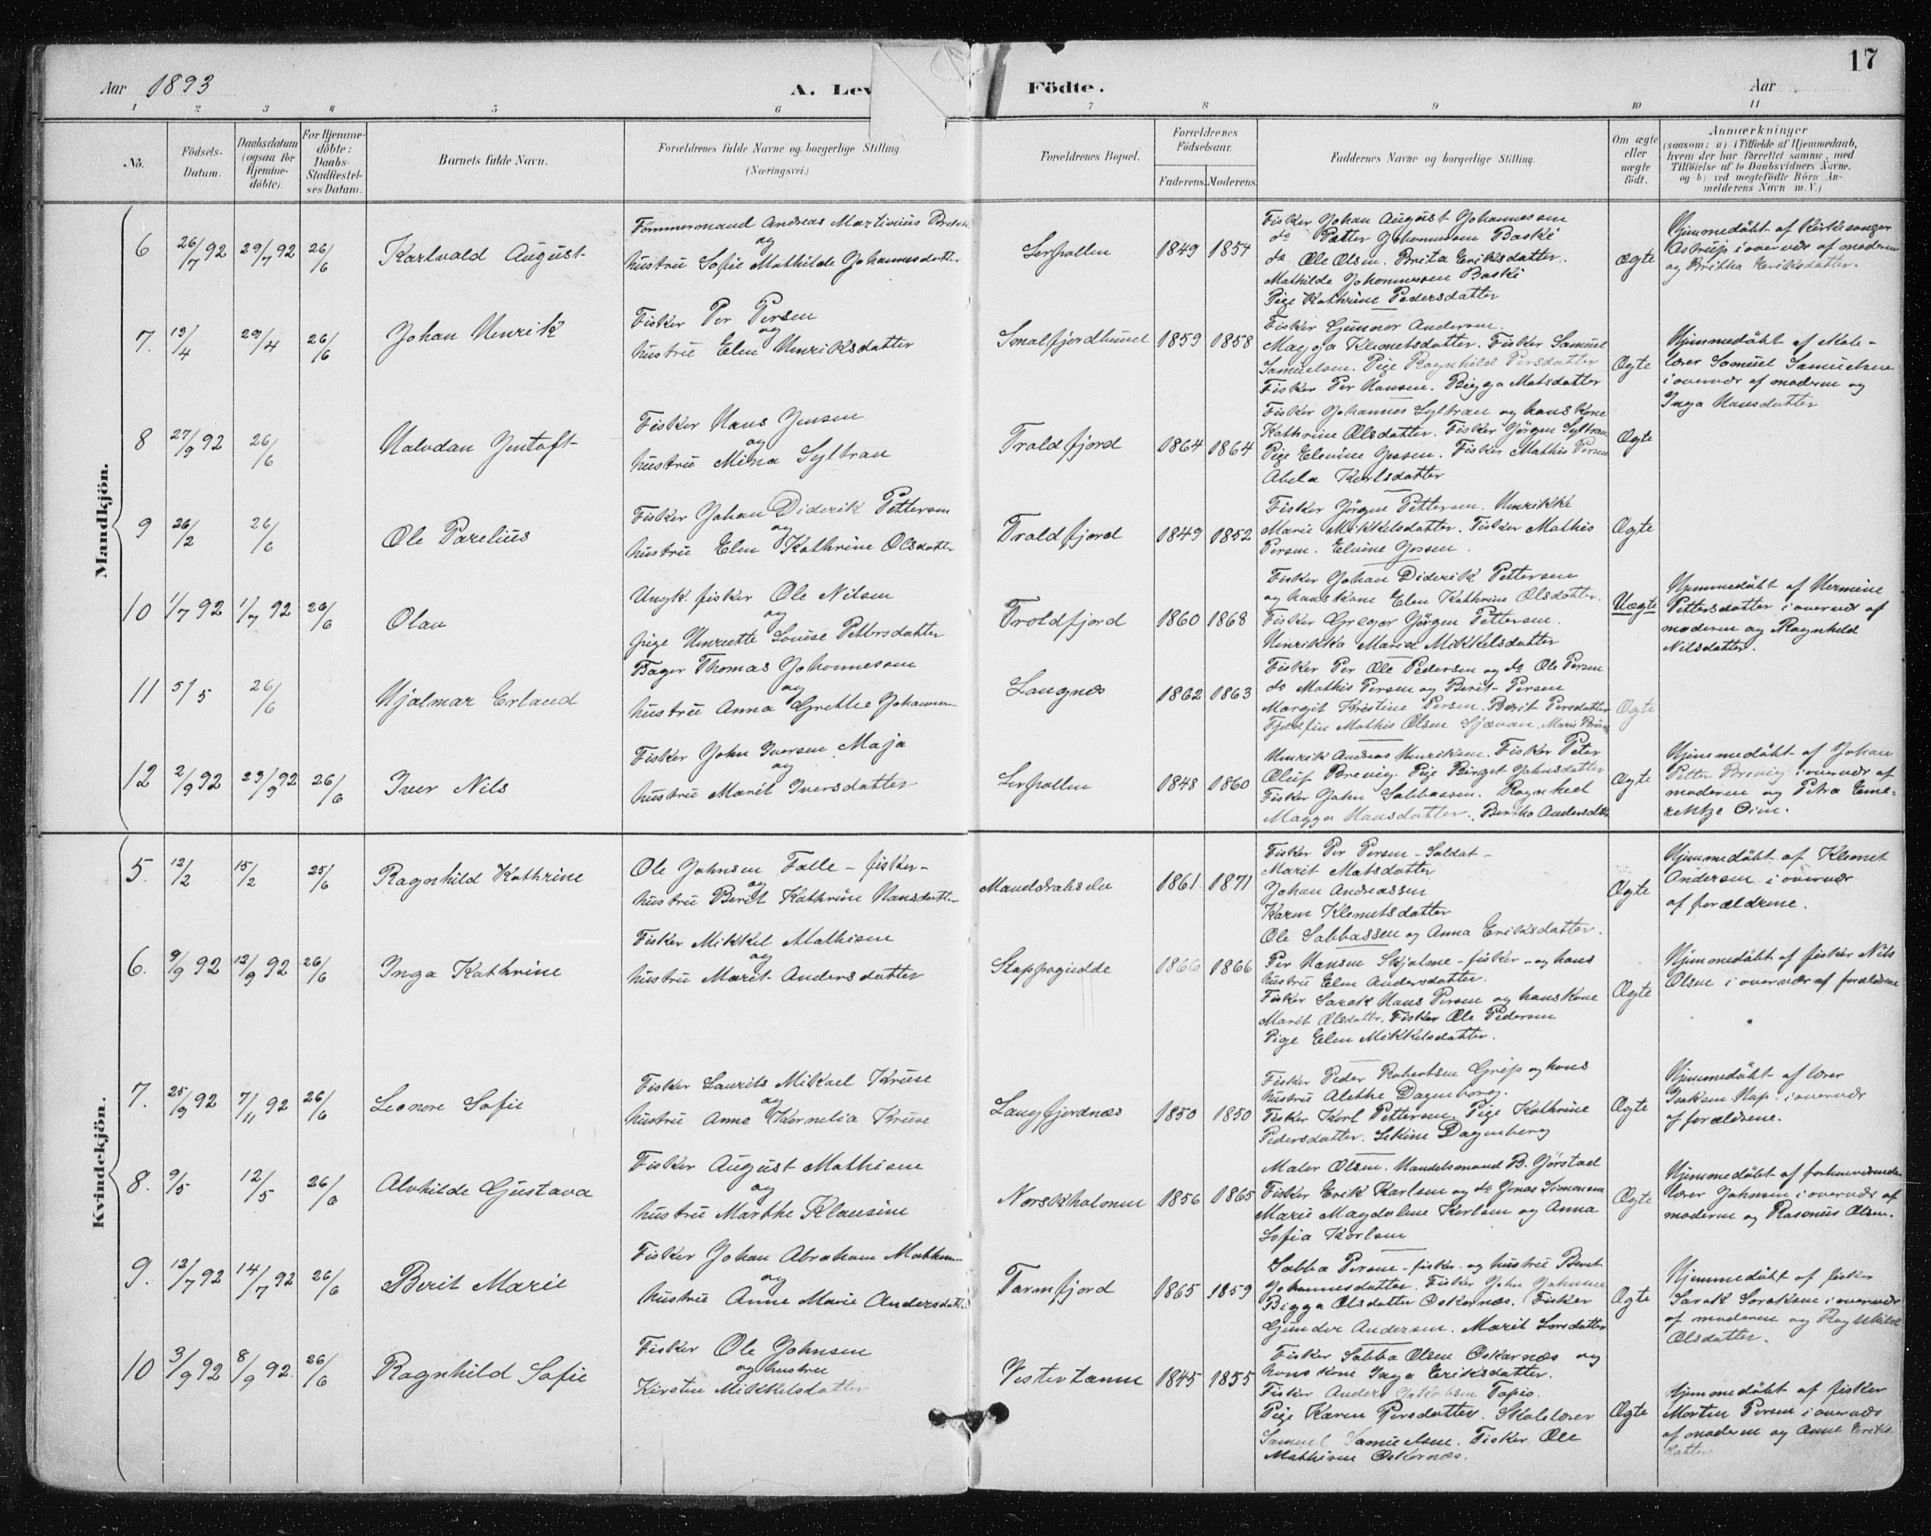 17
Aar 1893
A. Lev
Födte.
Aar
1 2 3 4 5 6 7 8 9 10 11
No.
Födsels-
Datum.
Daabsdatum
(ogsaa for
Hjemme-
döbte).
For Hjemme-
döbte:
Daabs-
Stadfæstel-
ses Datum.
Barnets fulde Navn.
Forældrenes fulde Navne og borgerlige Stilling
(Næringsvei.)
Forældrenes Bopæl.
Forældrenes
Födselsaar.
Faderens. Moderens.
Faddernes Navne og borgerlige Stilling.
Om ægte
eller
uægte
födt.
Anmærkninger
(saasom: a) i Tilfælde af Hjemmedaab,
hvem der har forrettet samme, med
Tilföielse af to Daabsvidners Navne.
og b) ved uægtefödte Börn An-
melderens Navn m. V.)
Mandkjön.
6 26/7 92 29/7 92 26/6 Karlvald August
Tømmermand Andreas Martinius
og
hustru Sofie Mathilde Johannesdatter
1849 1854
Fisker Johan August Johannessen
do Petter Johannesen Baski
do Ole Olsen. Brita Eriksdatter.
Mathilde Johannessen Baski
Pige Kathrine Pedersdatter
Ægte
Hjemmedøbt af Kirkesanger
Astrup i overvær af moderen
og Britha Eriksdatter.
7. 13/4 29/4 26/6 Johan Henrik
Fisker Per Persen
og
hustru Elen Henriksdatter
Smalfjordbunn 1859 1858
Fisker Gunnar Andersen.
Magga Klemetsdatter. Fisker Samuel
Samuelsen. Pige Ragnhild Persdatter
Fisker Per Hansen. Bigga Matsdatter
Ægte
Hjemmedøbt af skole-
lærer Samuel Samuelsen
i overvær af moderen og
Inga Hansdatter
8 27/9 92 26/6 Halvdan Gustaft
Fisker Hans Jensen
og
hustru Mina Syltran
Troldfjord 1864 1864
Fisker Johannes Syltran og hans kone
Kathrine Olsdatter. Fisker Jörgen Syltran
Pige Elevine Jessen. Fisker Mathis Persen
Abela Karlsdatter
Ægte
9 26/2 26/6 Ole Parelius
Fisker Johan Diderik Pettersen
og
hustru Elen Kathrine Olsdatter
Troldfjord 1849 1852
Fisker Jörgen Pettersen. Henrikke
Marie Mikkelsdatter. Fisker Mathis
Persen. Elvine Jessen.
Ægte
10 1/7 92 1/7 92 26/6 Olav
Ungk. fisker Ole Nilsen
og
pige Henriette Louise Pettersdatter
Troldfjord 1860 1868
Fisker Johan Diderik Pettersen
og hans kone Elen Kathrine Olsdatter.
Fisker Gregor Jörgen Pettersen.
Henrikka Maria Mikkelsdatter
Uægte
Hjemmedøbt af Hermine
Pettersdatter i overvær af
moderen og Ragnhild
Nilsdatter.
11 5/5 26/6 Hjalmar Erland
Bager Thomas Johannessen
og
hustru Anna Grethe Johannesen
Langnes 1862 1863
Fisker Per Ole Pedersen og do Ole Persen
do Mathis Persen og Berit Persen
Margit Kristine Persen. Berit Persdatter
Fjeldfin Mathis Olsen
Ægte
12 2/9 92 23/9 92 26/6 Iver Nils
Fisker John Iversen Maja
og
hustru Marit Iversdatter
1848 1860
Henrik Andreas Henriksen. Fisker Peter
Oluf Brevig. Pige Birget Johnsdatter
Fisker John Sabbasen. Ragnhild
Magga Hansdatter. Bertha Andersdtr
Ægte
Hjemmedøbt af Johan
Petter Brevig i overvær af
moderen og Petra Eme-
Kvindekjön.
5. 12/2 15/2 25/6 Ragnhild Kathrine
Ole Johnsen Falle - fisker -
og
hustru Berit Kathrine Hansdatter
1861 1871
Fisker Per Persen - Soldat -
Marit Matsdatter
Johan Andreassen
Karen Klemetsdatter
Ole Sabbassen og Anna Eriksdatter.
Ægte
Hjemmedøbt af Klemet
Andersen i overvær
af forældrene.
6. 9/9 92 12/9 92 26/6 Inga Kathrine
Fisker Mikkel Mathisen
og
hustru Marit Andersdatter
Stappogiedde 1866 1866
Per Hansen Skjalme - fisker - og hans
hustru Elen Andersdatter.
Fisker Sarak Hans Persen og hans kone
Marit Olsdatter. Fisker Ole Pedersen
Pige Elen Mikkelsdatter.
Ægte
Hjemmedøbt af fisker Nils
Olsen i overvær af forældrene
7. 25/9 92 7/11 92 26/6 Leonore Sofie
Fisker Laurits Mikael Kruse
og
hustru Anne Kornelia Kruse
Langfjordnæs 1850 1850
Fisker Peder Robertsen Grip og hans
hustru Alethe Dagenborg.
Fisker Karl Pettersen. Pige Kathrine
Pedersdatter. Sekine Dagenborg
Ægte
Hjemmedøbt af lærer
Isaksen Hap i overvær
af forældrene.
8. 9/5 12/5 26/6 Alvhilde Gustava
Fisker August Mathisen
og
hustru Marthe Klausine
Norskholmen 1856 1865
Maler Olsen. Handelsmand B. Jörstad
Fisker Erik Karlsen og do Jonas Simonsen
Marie Magdalene Karlsen og Anna
Sofia Karlsen
Ægte
Hjemmedøbt af forhenværende
lærer Johnsen i overvær af
moderen og Rasmus Olsen.
9. 12/7 92 14/7 92 26/6 Berit Marie
Fisker Johan Abraham Mathisen
og
hustru Anne Marie Andersdatter
Tarmfjord 1865 1859
Sabba Persen - fisker - og hustru Berit
Johannesdatter. Fisker John Johnsen
Bigga Olsdatter Oskarnæs. Fisker
Gunder Andersen. Marit Larsdatter
Ægte
Hjemmedøbt af fisker
Sarak Saraksen i overvær
af moderen og Ragnhild
Olsdatter.
10 3/9 92 8/9 92. 26/6 Ragnhild Sofie
Fisker Ole Johnsen
og hustru
Kirsten Mikkelsdatter
Vestertanen 1845 1855
Fisker Sabba Olsen Oskarnæs og
hans kone Inga Eriksdatter.
Fisker Anders Jakobsen Tapio.
Pige Karen Persdatter. Skolelærer
Samuel Samuelsen. Fisker Ole
Mathisen Oskarnæs.
Ægte
Hjemmedøbt af fisker
Morten Persen i overvær
af moderen og Anne Eriks
datter